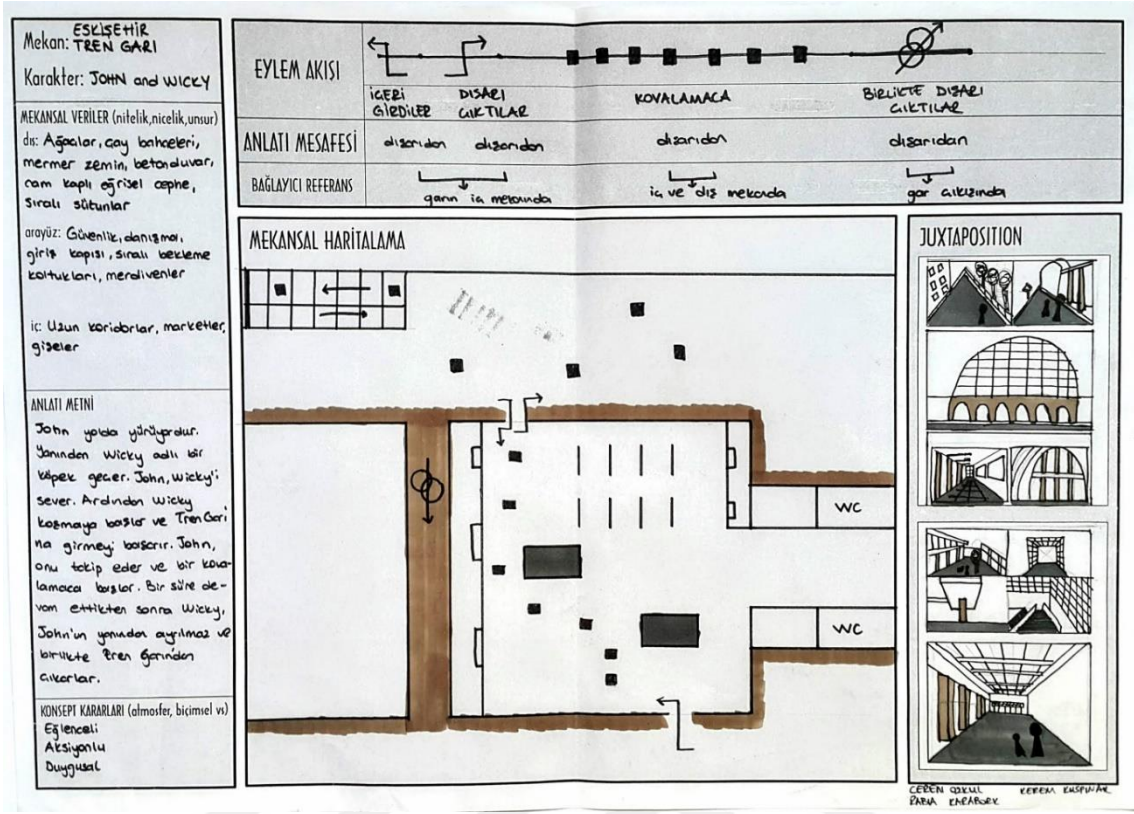 Mekan: ESKİŞEHİR
TREN GARI
Karakter: JOHN and WICKY
MEKANSAL VERİLER (nitelik,nicelik,unsur)
dış: Ağaçlar, çay bahçeleri,
mermer zemin, beton duvar,
cam kaplı eğrisel cephe,
sıralı sütunlar
arayüz: Güvenlik, danışma,
giriş kapısı, sıralı bekleme
koltukları, merdivenler
iç: Uzun koridorlar, marketler,
gişeler
ANLATI METNİ
John yolda yürüyordur.
Yanından Wicky adlı bir
köpek geçer. John, Wicky'i
sever. Ardından Wicky
koşmaya başlar ve Tren Garı
na girmeyi başarır. John,
onu takip eder ve bir kova-
lamaca başlar. Bir süre de-
vam ettikten sonra Wicky,
John'un yanından ayrılmaz ve
birlikte tren garından
çıkarlar.
KONSEPT KARARLARI (atmosfer, biçimsel vs)
Eğlenceli
Aksiyonlu
Duygusal
EYLEM AKISI
İÇERİ GİRDİLER
DIŞARI ÇIKTILAR
KOVALAMACA
BİRLİKTE DIŞARI ÇIKTILAR
ANLATI MESAFESİ
dışarıdan dışarıdan dışarıdan dışarıdan
BAĞLAYICI REFERANS
garın iç mekanında
iç ve dış mekanda
gar çıkışında
MEKANSAL HARİTALAMA
WC
WC
JUXTAPOSITION
CEREN ÇOKUL KEREM KUŞPINAR
RABİA KARABÖRK